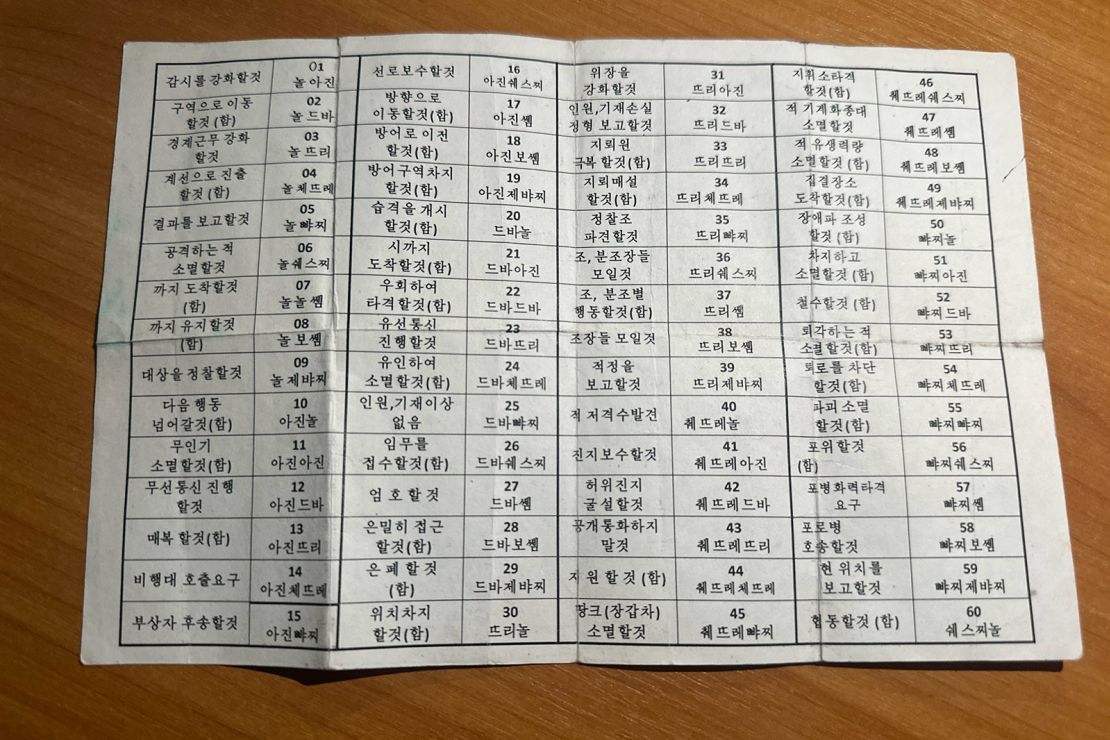 감시를 강화할것
01
놀 아진
구역으로 이동
할것 (함)
02
놀 드바
경계근무 강화
할것
03
놀 뜨리
계선으로 진출
할것 (함)
04
놀 체뜨레
결과를 보고할것
05
놀 뺘찌
공격하는 적
소멸할것
06
놀쉐스찌
까지 도착할것
(함)
07
놀놀 쎔
까지 유지할것
(함)
08
놀 보쎔
대상을 정찰할것
09
놀 제뱌찌
다음 행동
넘어갈것(함)
10
아진놀
무인기
소멸할것(함)
11
아진아진
무선통신 진행
할것
12
아진드바
매복 할것(함)
13
아진뜨리
비행대 호출요구
14
아진체뜨레
부상자 후송할것
15
아진뺘찌
선로보수할것
16
아진쉐스찌
방향으로
이동할것(함)
17
아진쎔
방어로 이전
할것(함)
18
아진보쎔
방어구역차지
할것(함)
19
아진제뱌찌
습격을 개시
할것(함)
20
드바놀
시까지
도착할것(함)
21
드바아진
우회하여
타격할것(함)
22
드바드바
유선통신
진행할것
23
드바뜨리
유인하여
소멸할것(함)
24
드바체뜨레
인원,기재이상
없음
25
드바뺘찌
임무를
접수할것(함)
26
드바쉐스찌
엄호할것
27
드바쎔
은밀히 접근
할것(함)
28
드바보쎔
은폐할것
(함)
29
드바제뱌찌
위치차지
할것(함)
30
뜨리놀
위장을
강화할것
31
뜨리아진
인원,기재손실
정형 보고할것
32
뜨리드바
지뢰원
극복할것(함)
33
뜨리뜨리
지뢰매설
할것(함)
34
뜨리체뜨레
정찰조
파견할것
35
뜨리뺘찌
조, 분조장들
모일것
36
뜨리쉐스찌
조, 분조별
행동할것(함)
37
뜨리쎔
조장들 모일것
38
뜨리보쎔
적정을
보고할것
39
뜨리제뱌찌
적 저격수발견
40
췌뜨레놀
진지보수할것
41
췌뜨레아진
허위진지
굴설할것
42
췌뜨레드바
공개통화하지
말것
43
췌뜨레뜨리
지원할것 (함)
44
췌뜨레체뜨레
땅크(장갑차)
소멸할것
45
췌뜨레뺘찌
지휘소타격
할것(함)
46
췌뜨레쉐스찌
적 기계화종대
소멸할것
47
췌뜨레쎔
적 유생력량
소멸할것 (함)
48
췌뜨레보쎔
집결장소
도착할것(함)
49
췌뜨레제뱌찌
장애파 조성
할것 (함)
50
뺘찌놀
차지하고
소멸할것 (함)
51
뺘찌아진
철수할것 (함)
52
뺘찌드바
퇴각하는 적
소멸할것(함)
53
뺘찌뜨리
퇴로를 차단
할것(함)
54
뺘찌체뜨레
파괴 소멸
할것(함)
55
뺘찌뺘찌
포위할것
(함)
56
뺘찌쉐스찌
포병화력타격
요구
57
뺘찌쎔
포로병
호송할것
58
뺘찌보쎔
현 위치를
보고할것
59
뺘찌제뱌찌
협동할것 (함)
60
쉐스찌놀